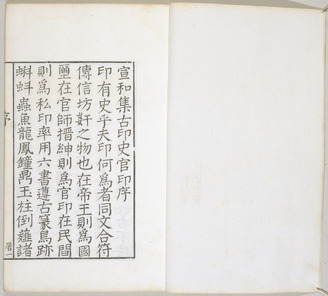 宣和集古印史官印序
印有史乎夫印何為者同文合符
傳信坊奸之物也在帝王則為國
璽在官師搢紳則為官印在民間
則為私印率用六書遵古篆鳥跡
蝌蚪蟲魚龍鳳鐘鼎玉柱倒薤諸
序